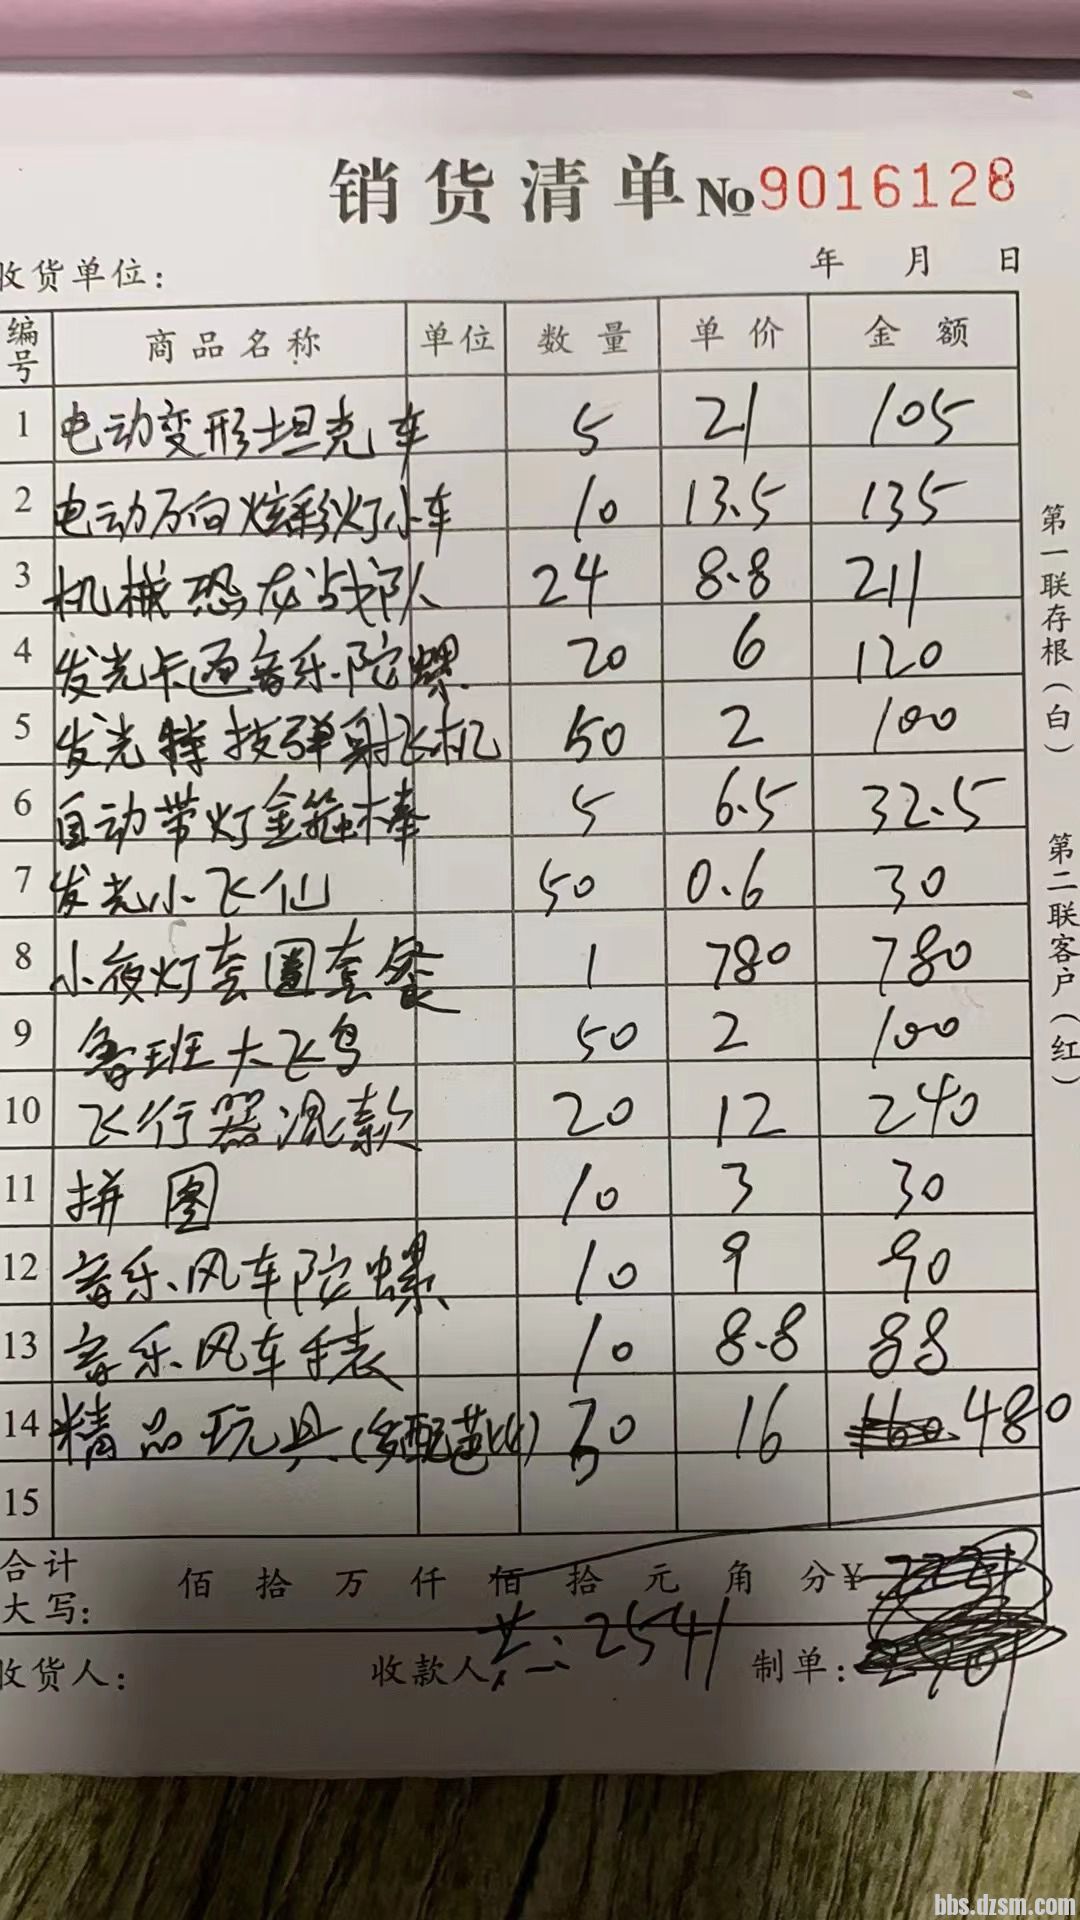 销货清单 № 9016128
收货单位: 年 月 日
编号 商品名称 单位 数量 单价 金额
1 电动变形坦克车 5 21 105
2 电动万向炫彩灯小车 10 13.5 135
3 机械恐龙战队 24 8.8 211
4 发光卡通音乐陀螺 20 6 120
5 发光特技弹射飞机 50 2 100
6 自动带灯金箍棒 5 6.5 32.5
7 发光小飞仙 50 0.6 30
8 小夜灯套圈套餐 1 780 780
9 鲁班大飞鸟 50 2 100
10 飞行器混款 20 12 240
11 拼图 10 3 30
12 音乐风车陀螺 10 9 90
13 音乐风车手表 10 8.8 88
14 精品玩具(多配 30 16 480
15
合计大写: 佰 拾 万 仟 佰 拾 元 角 分 ¥
共:2541
收货人: 收款人: 制单:
第一联存根(白) 第二联客户(红)
bbs.dzsm.com